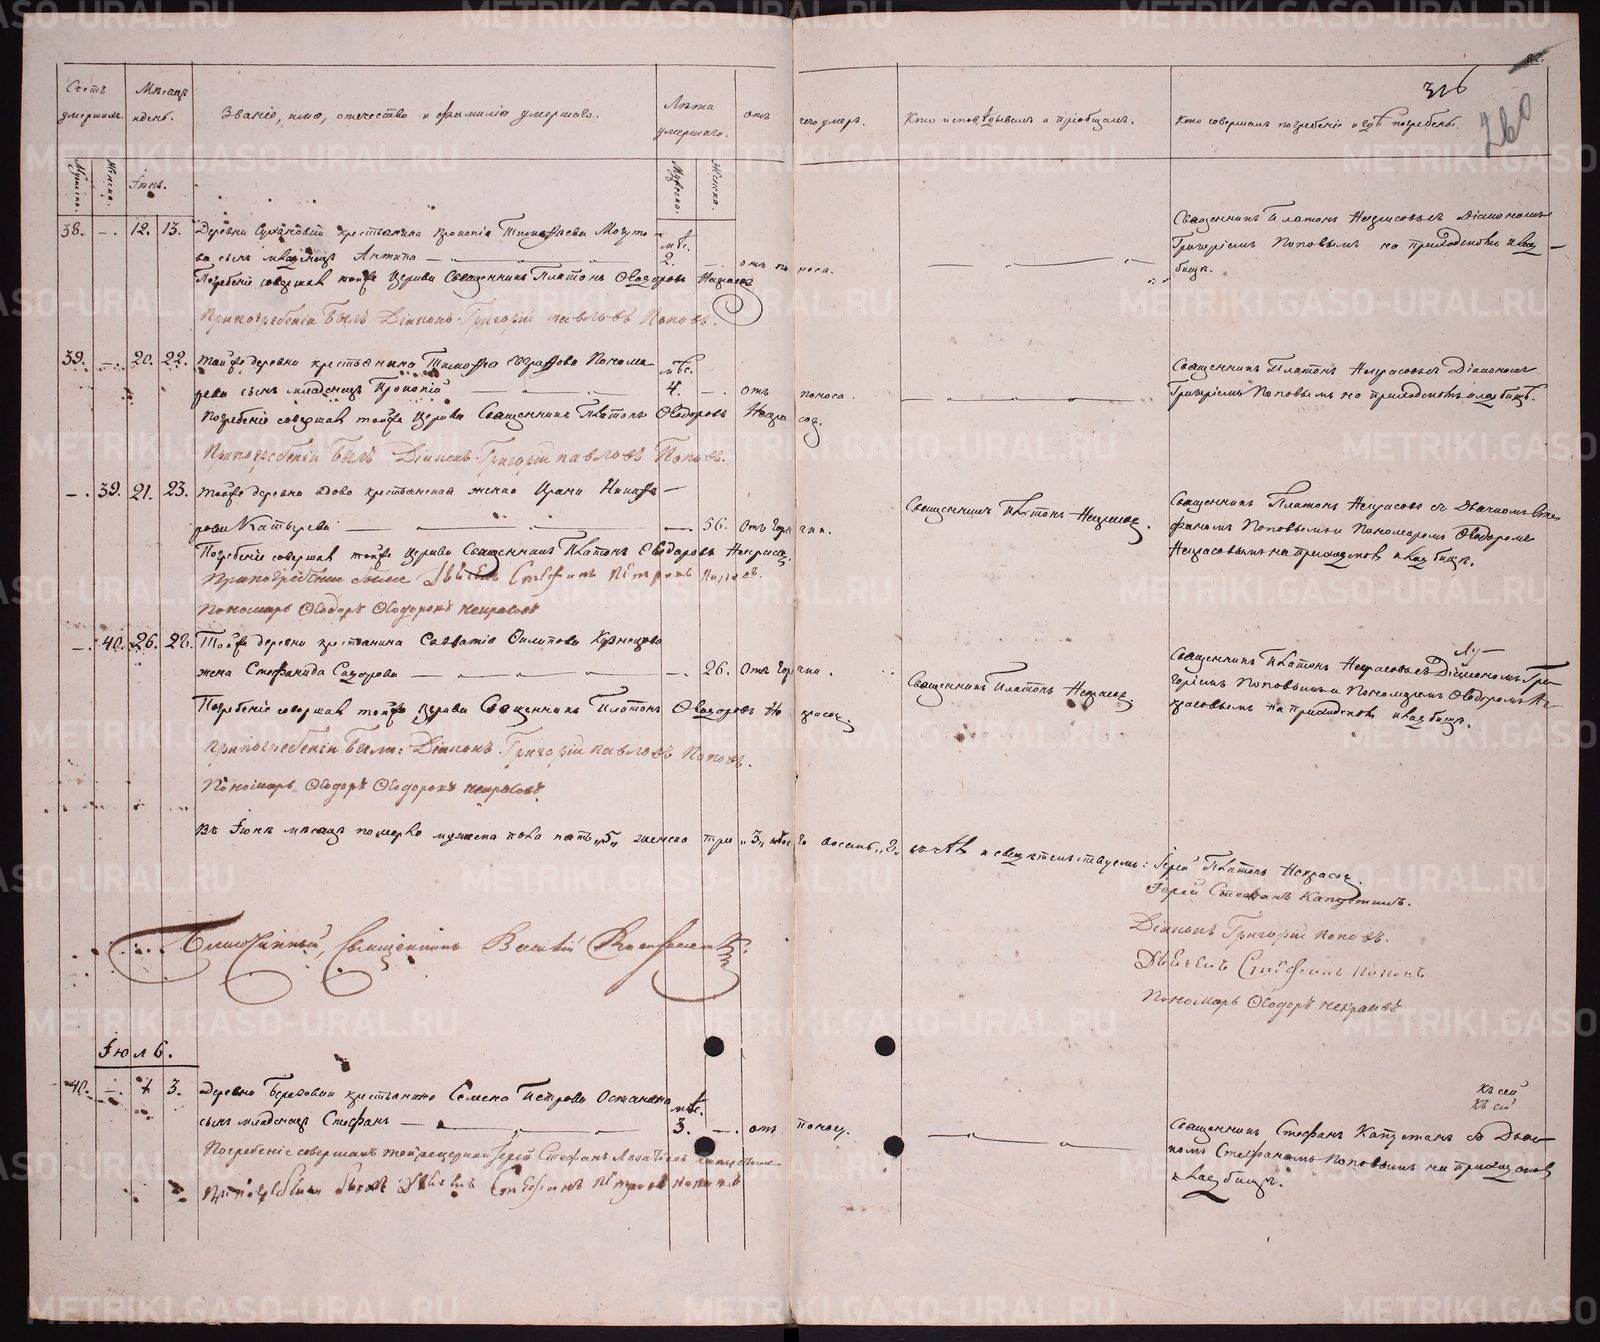 316
260
Счетъ умершихъ.
Мѣсяцъ и день.
Званіе, имя, отечество и фамилія умершаго.
Лѣта умершаго.
отъ чего умеръ.
Кто исповѣдывалъ и пріобщалъ.
Кто совершалъ погребеніе и гдѣ погребены.
Мужеска. Женска. Іюнь. Мужеска. Женска.
38. — 12. 13. Деревни крестьянина Прокопія
сынъ младенецъ Антипа — мѣс. 2. — отъ поноса.
Погребеніе совершалъ тойже Церкви Священникъ Платонъ Ѳеодоровъ Некрасов
При погребеніи былъ Діаконъ Григорій Павловъ Поповъ.
Священникъ Платонъ Некрасовъ съ Діакономъ
Григоріемъ Поповымъ на приходскомъ клад-
бищѣ.
39. — 20. 22. Тойже деревни крестьянина Понома-
рева сынъ младенецъ Прокопій — мѣс. 4. — отъ поноса.
Погребеніе совершалъ тойже Церкви Священникъ Платонъ Ѳеодоровъ Некрасов.
При погребеніи былъ Діаконъ Григорій Павловъ Поповъ.
Священникъ Платонъ Некрасовъ съ Діакономъ
Григоріемъ Поповымъ на приходскомъ кладбищѣ.
— 39. 21. 23. Тойже деревни вдова крестьянская женка
— 56. Отъ горячки.
Погребеніе совершалъ тойже Церкви Священникъ Платонъ Ѳеодоровъ Некрасов.
При погребеніи были Дьячекъ Стефанъ Петровъ Поповъ.
Пономарь Ѳеодоръ Ѳеодоровъ Некрасовъ
Священникъ Платонъ Некрасов.
Священникъ Платонъ Некрасовъ съ Дьячкомъ Сте-
фаномъ Поповымъ и Пономаремъ Ѳеодоромъ
Некрасовымъ на приходском кладбищѣ.
— 40. 26. 28. Тойже деревни крестьянина Савватія Филипова Кузнецова
жена Стефанида — 26. Отъ горячки.
Погребеніе совершалъ тойже Церкви Священникъ Платонъ Ѳеодоровъ Некрасов.
При погребеніи были: Діаконъ Григорій Павловъ Поповъ.
Пономарь Ѳеодоръ Ѳеодоровъ Некрасовъ.
Священникъ Платонъ Некрасов.
Священникъ Платонъ Некрасовъ съ Діакономъ Гри-
горіемъ Поповымъ и Пономаремъ Ѳеодоромъ Не-
красовымъ на приходском кладбищѣ.
Въ Іюнѣ мѣсяцѣ померло мужеска пола пять „5„ женска три „3„ восемь „8„ свидѣтельствуемъ: Іерей Платонъ Некрасов.
Іерей Стефанъ Капустинъ.
Діаконъ Григорій Поповъ.
Дьячекъ Стефанъ Поповъ
Пономарь Ѳеодоръ Некрасовъ
Благочинный, Священникъ Василій
Іюль.
40. — 1. 3. Деревни крестьянина Семена Петрова Останина
сынъ младенецъ Стефанъ — мѣс. 3. — отъ поносу.
Погребеніе совершалъ тойже церкви Іерей Стефанъ Леонтіевъ Капустинъ
При погребеніи былъ Дьячекъ Стефанъ Петровъ Поповъ
Священникъ Стефанъ Капустинъ съ Дьяч-
комъ Стефаномъ Поповымъ на приходском
кладбищѣ.
METRIKI.GASO-URAL.RU